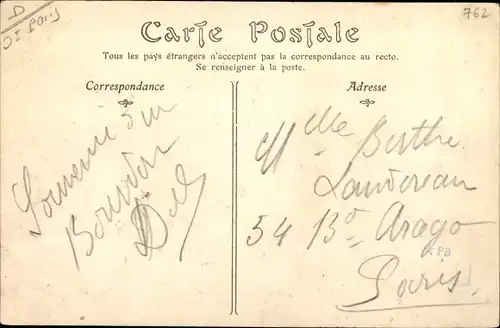 762
Carte Postale
Tous les pays étrangers n'acceptent pas la correspondance au recto.
Se renseigner à la poste.
Correspondance
Adresse
Souvenir d'un
Mlle Berthe
Landereau
54 Bd Arago
Paris